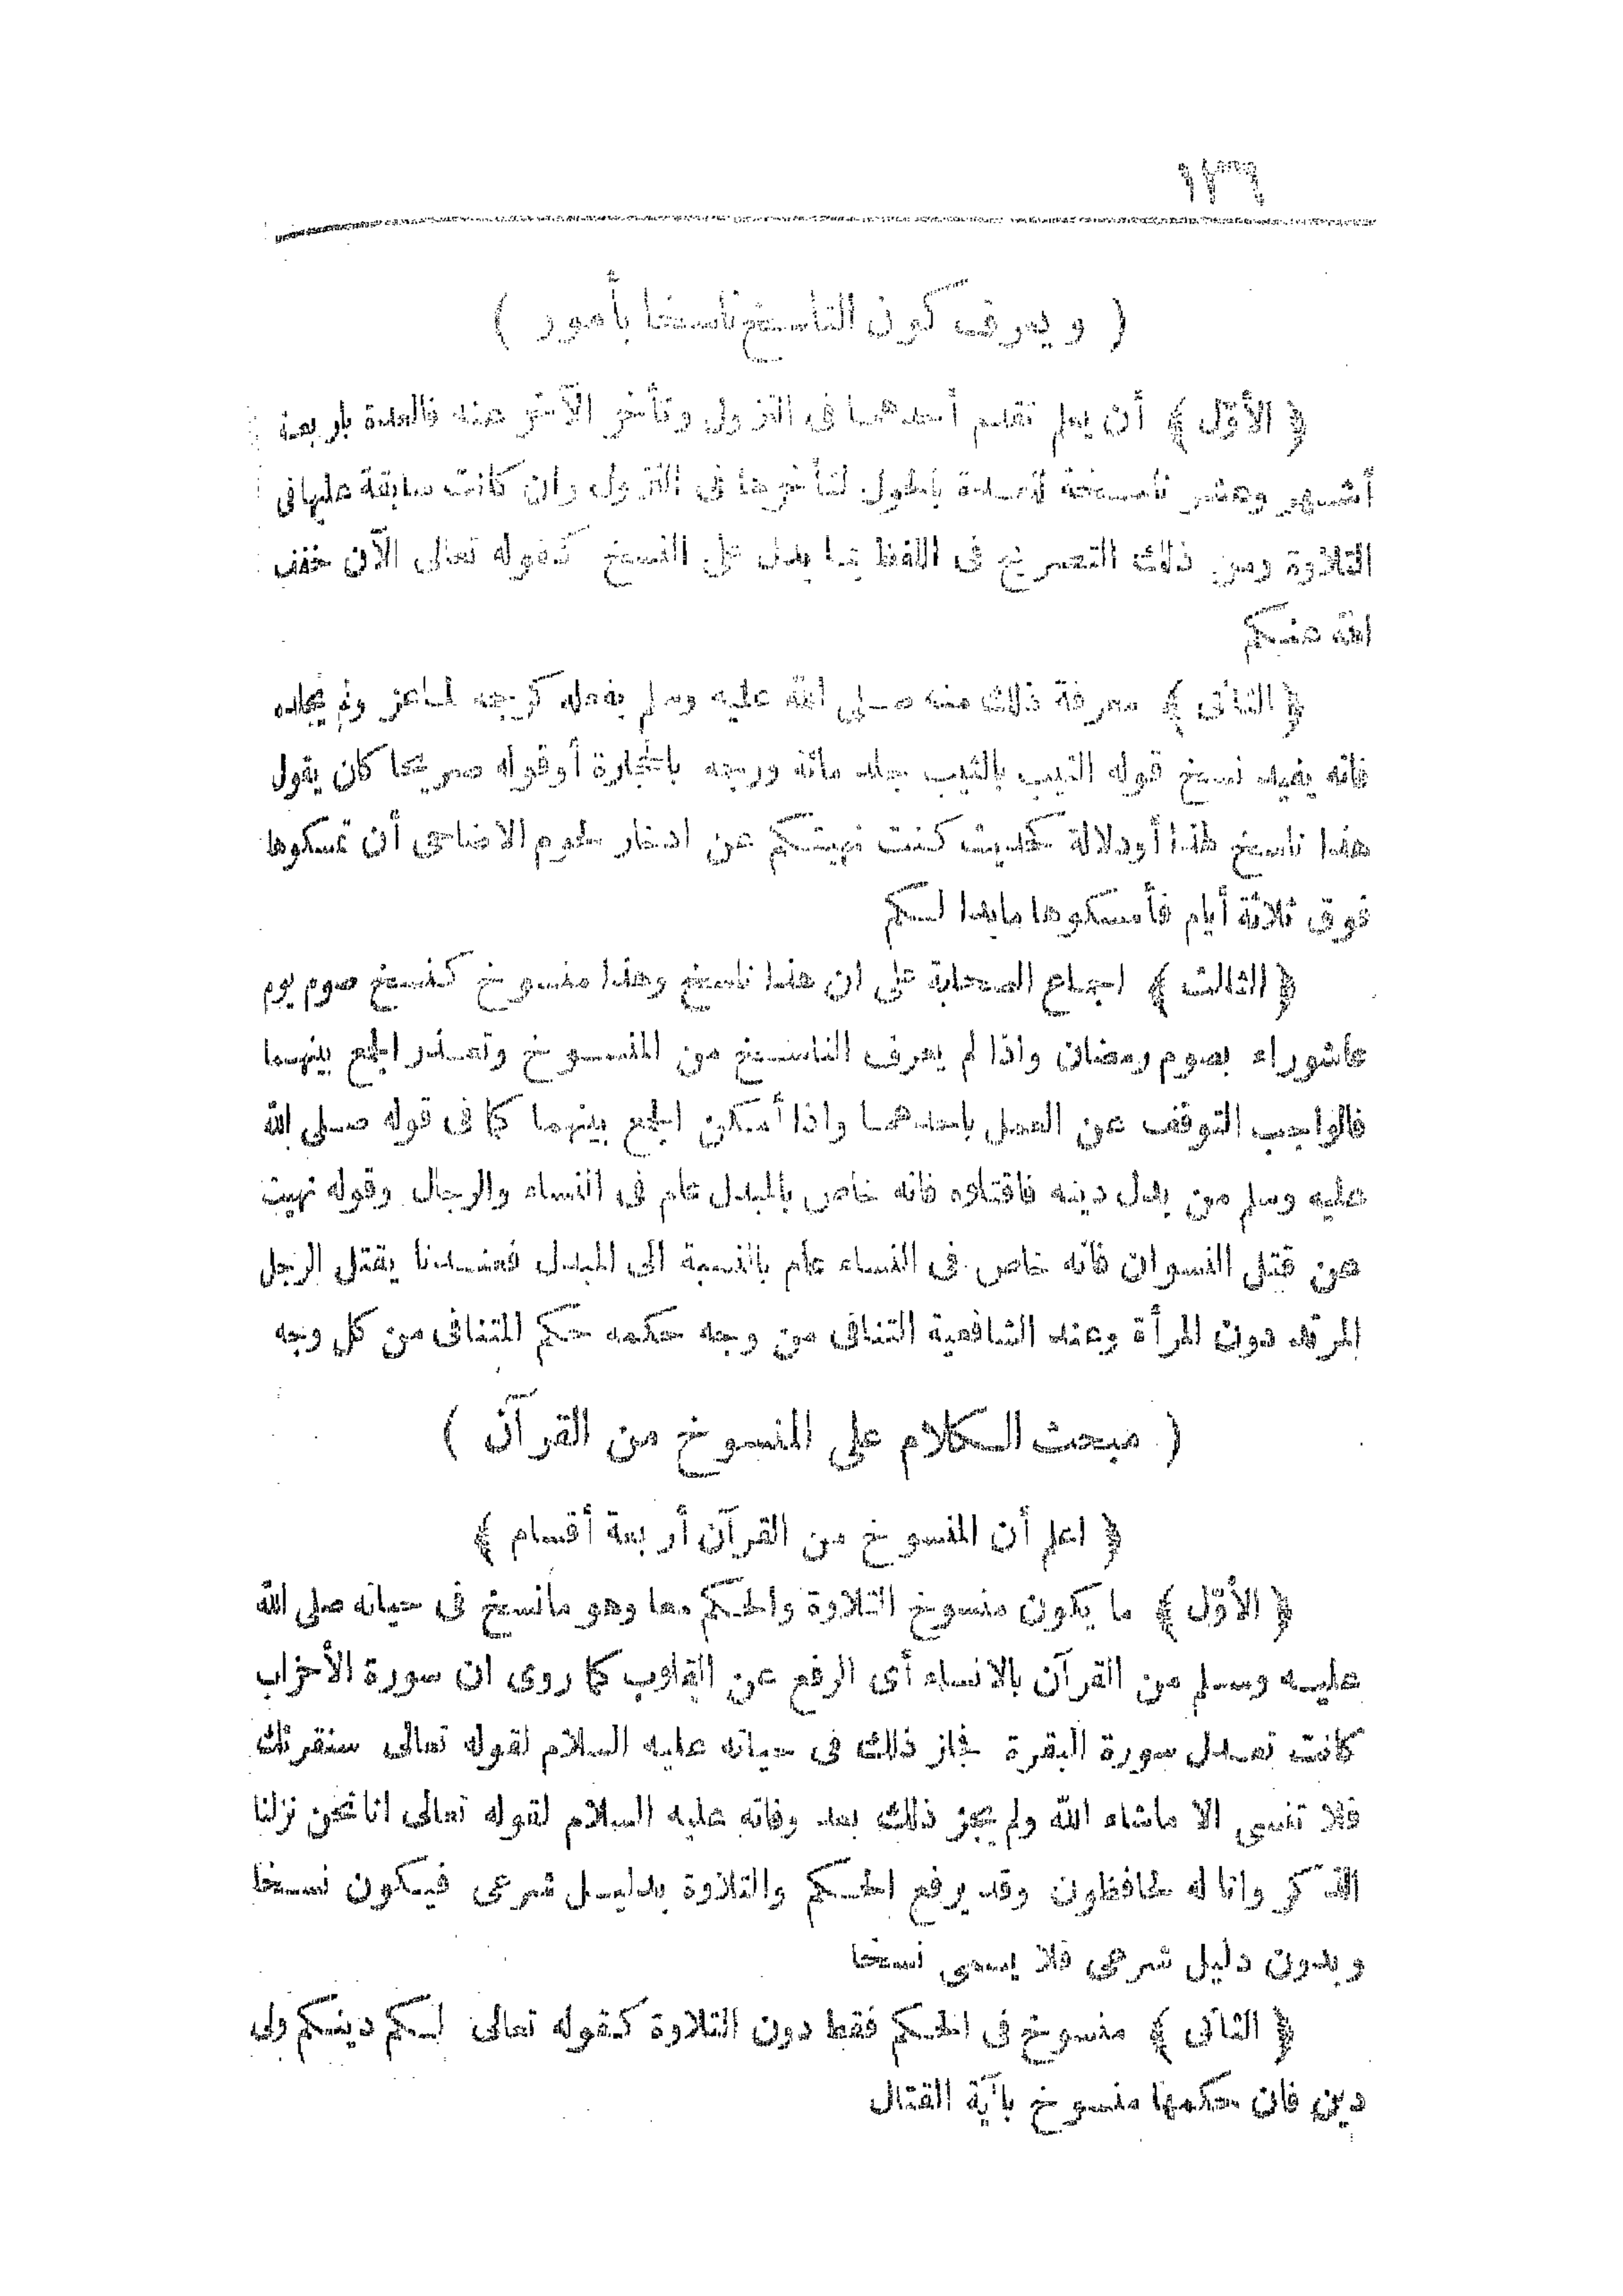 ١٣٦
( ويعرف كون الناسخ ناسخا بأمور )
﴿ الأوّل ﴾ أن يعلم تقدم أحدهما فى النزول وتأخر الآخر عنه فالعدة بأربعة
أشهر وعشر ناسخة للعدة بالحول لتأخرها فى النزول وان كانت سابقة عليها فى
التلاوة ومن ذلك التصريح فى اللفظ بما يدل على النسخ كقوله تعالى الآن خفف
الله عنكم
﴿ الثانى ﴾ معرفة ذلك منه صلى الله عليه وسلم بفعله كرجمه لماعز ولم يجلده
فانه يفيد نسخ قوله الثيب بالثيب جلد مائة ورجمه بالحجارة أوقوله صريحا كان يقول
هذا ناسخ لهذا أودلالة كحديث كنت نهيتكم عن ادخار لحوم الاضاحى أن تمسكوها
فوق ثلاثة أيام فأمسكوها مابدا لكم
﴿ الثالث ﴾ اجماع الصحابة على ان هذا ناسخ وهذا منسوخ كنسخ صوم يوم
عاشوراء بصوم رمضان واذا لم يعرف الناسخ من المنسوخ وتعذر الجمع بينهما
فالواجب التوقف عن العمل باحدهما واذا أمكن الجمع بينهما كما فى قوله صلى الله
عليه وسلم من بدل دينه فاقتلوه فانه خاص بالمبدل عام فى النساء والرجال وقوله نهيت
عن قتل النسوان فانه خاص فى النساء عام بالنسبة الى المبدل فعندنا يقتل الرجل
المرتد دون المرأة وعند الشافعية التنافى من وجه حكمه حكم المتنافى من كل وجه
( مبحث الكلام على المنسوخ من القرآن )
﴿ اعلم أن المنسوخ من القرآن أربعة أقسام ﴾
﴿ الأوّل ﴾ ما يكون منسوخ التلاوة والحكم معا وهو مانسخ فى حياته صلى الله
عليه وسلم من القرآن بالانساء أى الرفع عن القلوب كما روى ان سورة الأحزاب
كانت تعدل سورة البقرة فجاز ذلك فى حياته عليه السلام لقوله تعالى سنقرئك
فلا تنسى الا ماشاء الله ولم يجز ذلك بعد وفاته عليه السلام لقوله تعالى انا نحن نزلنا
الذكر وانا له لحافظون وقد يرفع الحكم والتلاوة بدليل شرعى فيكون نسخا
وبدون دليل شرعى فلا يسمى نسخا
﴿ الثانى ﴾ منسوخ فى الحكم فقط دون التلاوة كقوله تعالى لكم دينكم ولى
دين فان حكمها منسوخ بآية القتال